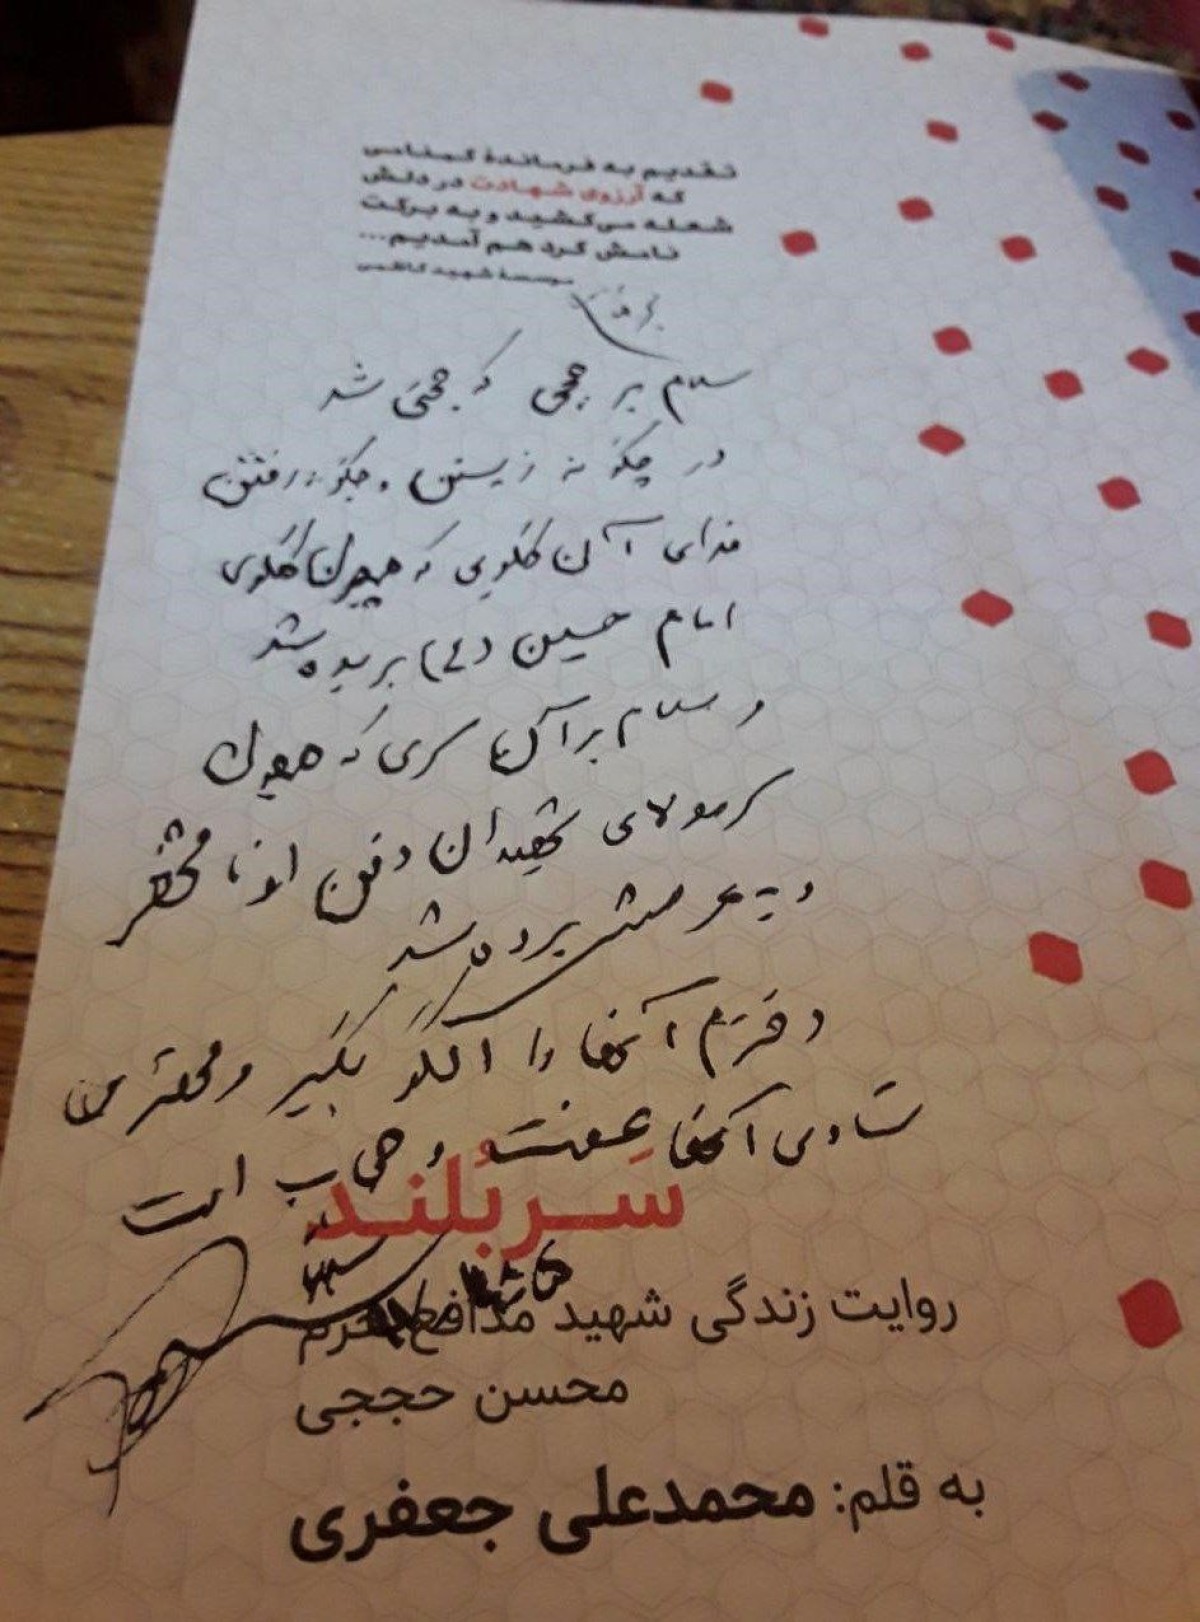 تقدیم به فرماندهٔ گمنامی
که آرزوی شهادت در دلش
شعله می‌کشید و به برکت
نامش گرد هم آمدیم...
موسسهٔ شهید کاظمی
سلام بر حججی که حجتی شد
در چگونه زیستن و چگونه رفتن
فدای آن گلویی که همچون گلوی
امام حسین (ع) بریده شد
و سلام بر آن سری که همچون
سر مولای شهیدان دفن او نا مشخص
و به عرش برده شد
دخترم آنها را الگو بگیر و مهمترین
تساوی آنها عفت و حجاب است
سربُلند
روایت زندگی شهید مدافع حرم
محسن حججی
به قلم: محمدعلی جعفری